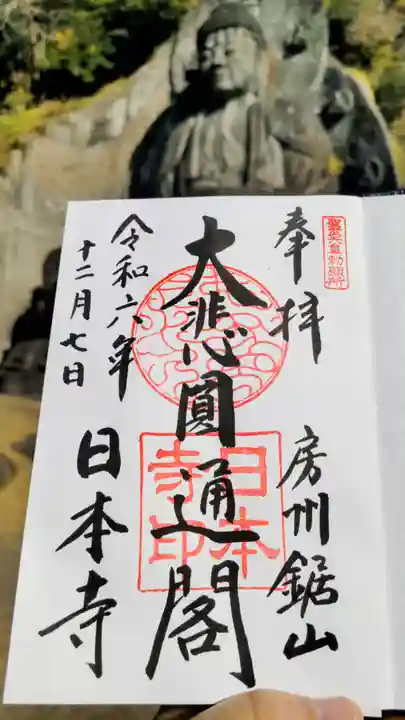 聖武天皇勅願所
奉拝
房州鋸山
大悲圓通閣
日本寺印
令和六年
十二月七日
日本寺